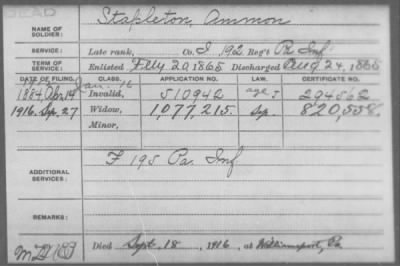 DEAD
NAME OF SOLDIER: Stapleton, Ammon
SERVICE: Late rank, Co. I 192 Reg't Pa Inf
TERM OF SERVICE: Enlisted Feby 20, 1865 Discharged Aug 24, 1865
DATE OF FILING. CLASS. APPLICATION NO. LAW. CERTIFICATE NO.
Jan. 16
1884, Apr 14 Invalid, 510942 age 294562
1916. Sep. 27 Widow, 1,077,215. Sep. 820,558.
Minor,
ADDITIONAL SERVICES: F 195 Pa. Inf
REMARKS:
Died Sept. 18, 1916, at Williamsport, Pa